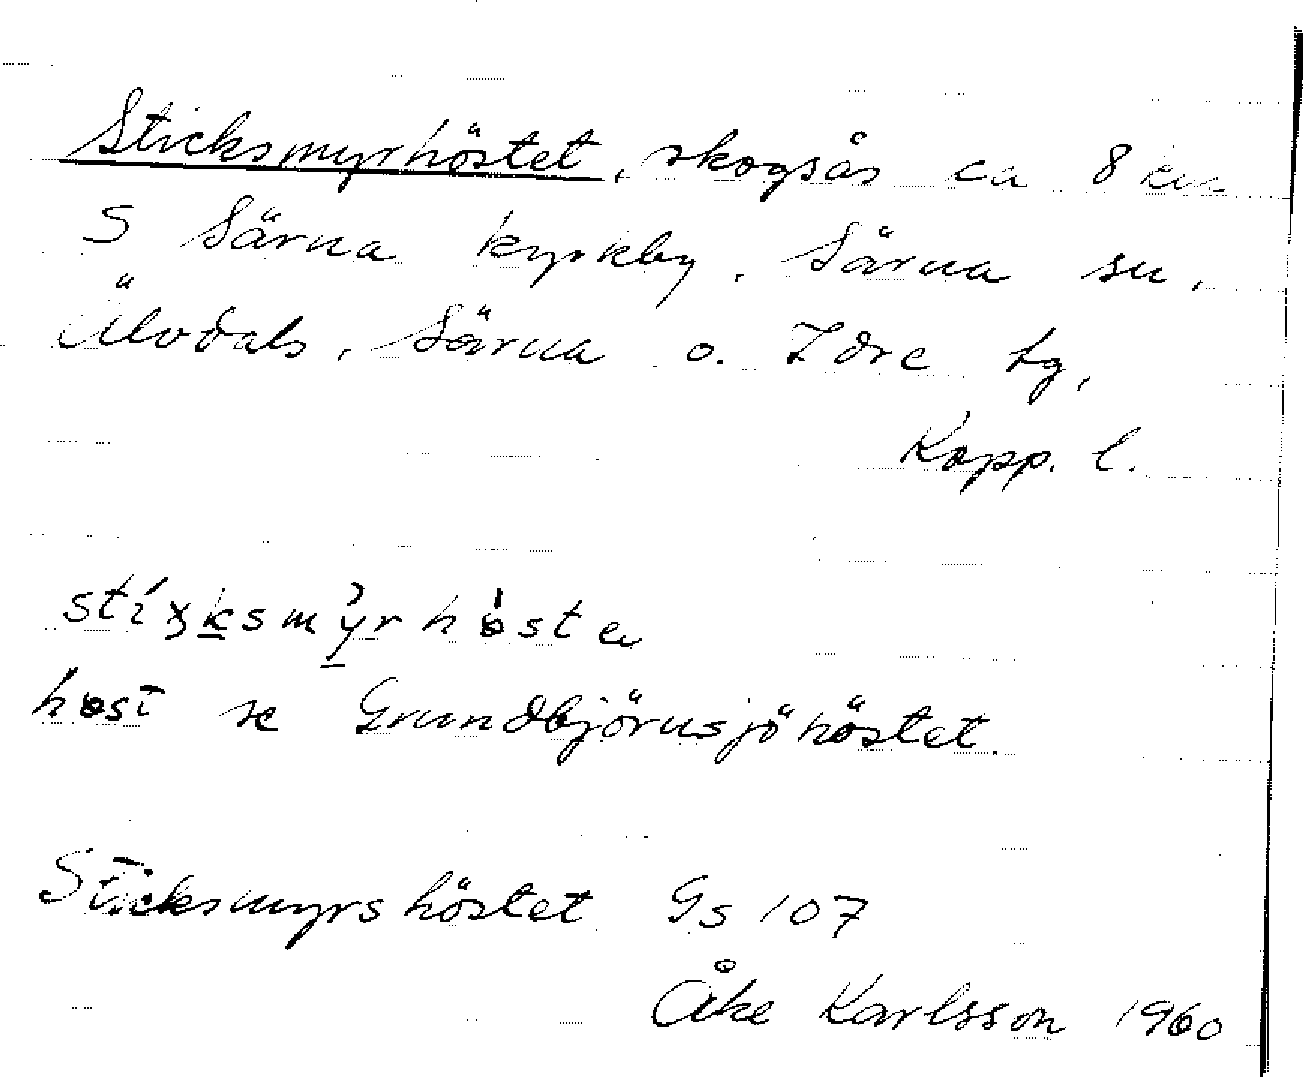 Sticksmyrhöstet, skogsås ca 8 km
S Särna kyrkby, Särna sn,
Älvdals, Särna o. Idre tg,
Kopp. l.
höst se Grundbjörnsjöhöstet.
Sticksmyrshöstet Gs 107
Åke Karlsson 1960